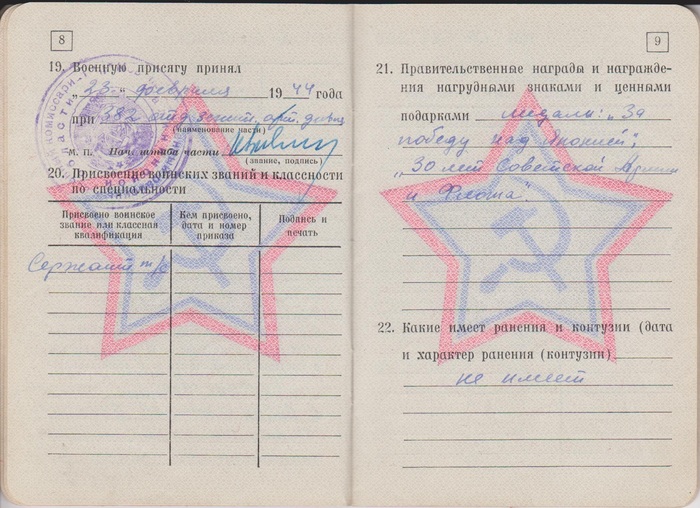 8
19. Военную присягу принял
„ 23 “ февраля 1944 года
при 382 отд. зенит. арт. дивиз
(наименование части)
М. П. Нач. штаба части
(звание, подпись)
20. Присвоение воинских званий и классности
по специальности
Присвоено воинское звание или классная квалификация
Кем присвоено, дата и номер приказа
Подпись и печать
Сержант
9
21. Правительственные награды и награжде-
ния нагрудными знаками и ценными
подарками медали: „За
победу над Японией“,
„30 лет Советской Армии
и Флота“
22. Какие имеет ранения и контузии (дата
и характер ранения (контузии)
не имеет